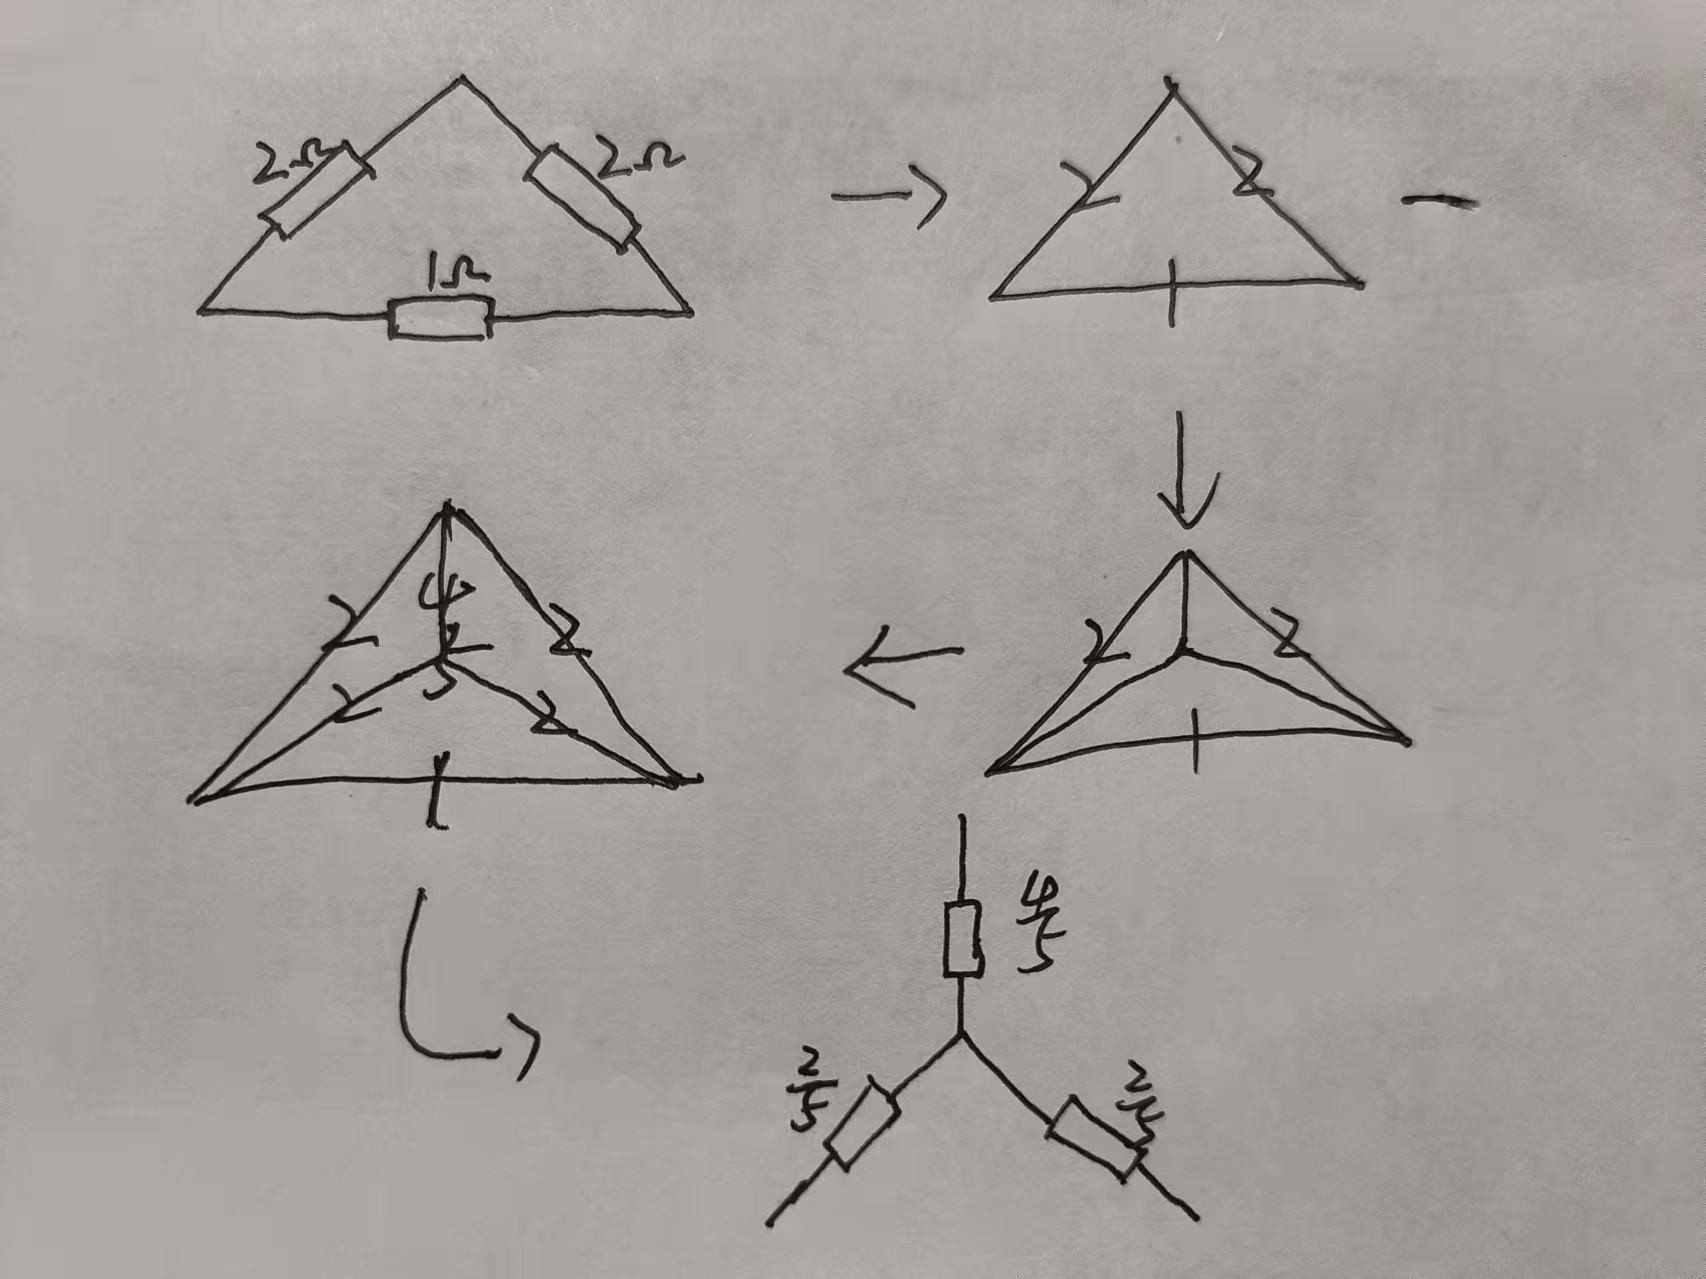 2Ω 2Ω
1Ω
→ 2 2 —
1
↓
2 4 2
2 5 2
1
← 2 2
1
4/5
2/5 2/5